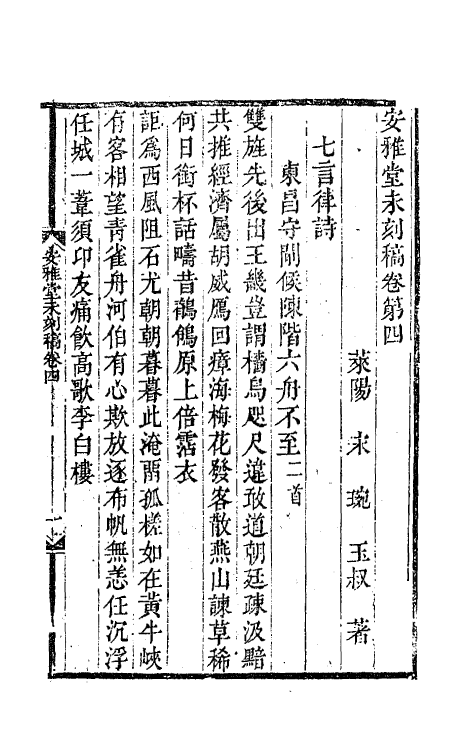 安雅堂未刻稿卷第四
萊陽 宋琬 玉叔 著
七言律詩
東昌守閘候陳階六舟不至二首
雙旌先後出王畿豈謂檣烏咫尺違敢道朝廷疎汲黯
共推經濟屬胡威鴈回瘴海梅花發客散燕山諫草稀
何日銜杯話疇昔鶺鴒原上倍霑衣
詎為西風阻石尤朝朝暮暮此淹畱孤槎如在黃牛峽
有客相望靑雀舟河伯有心欺放逐布帆無恙任沉浮
任城一葦須卭友痛飲高歌李白樓
安雅堂未刻稿卷四
一